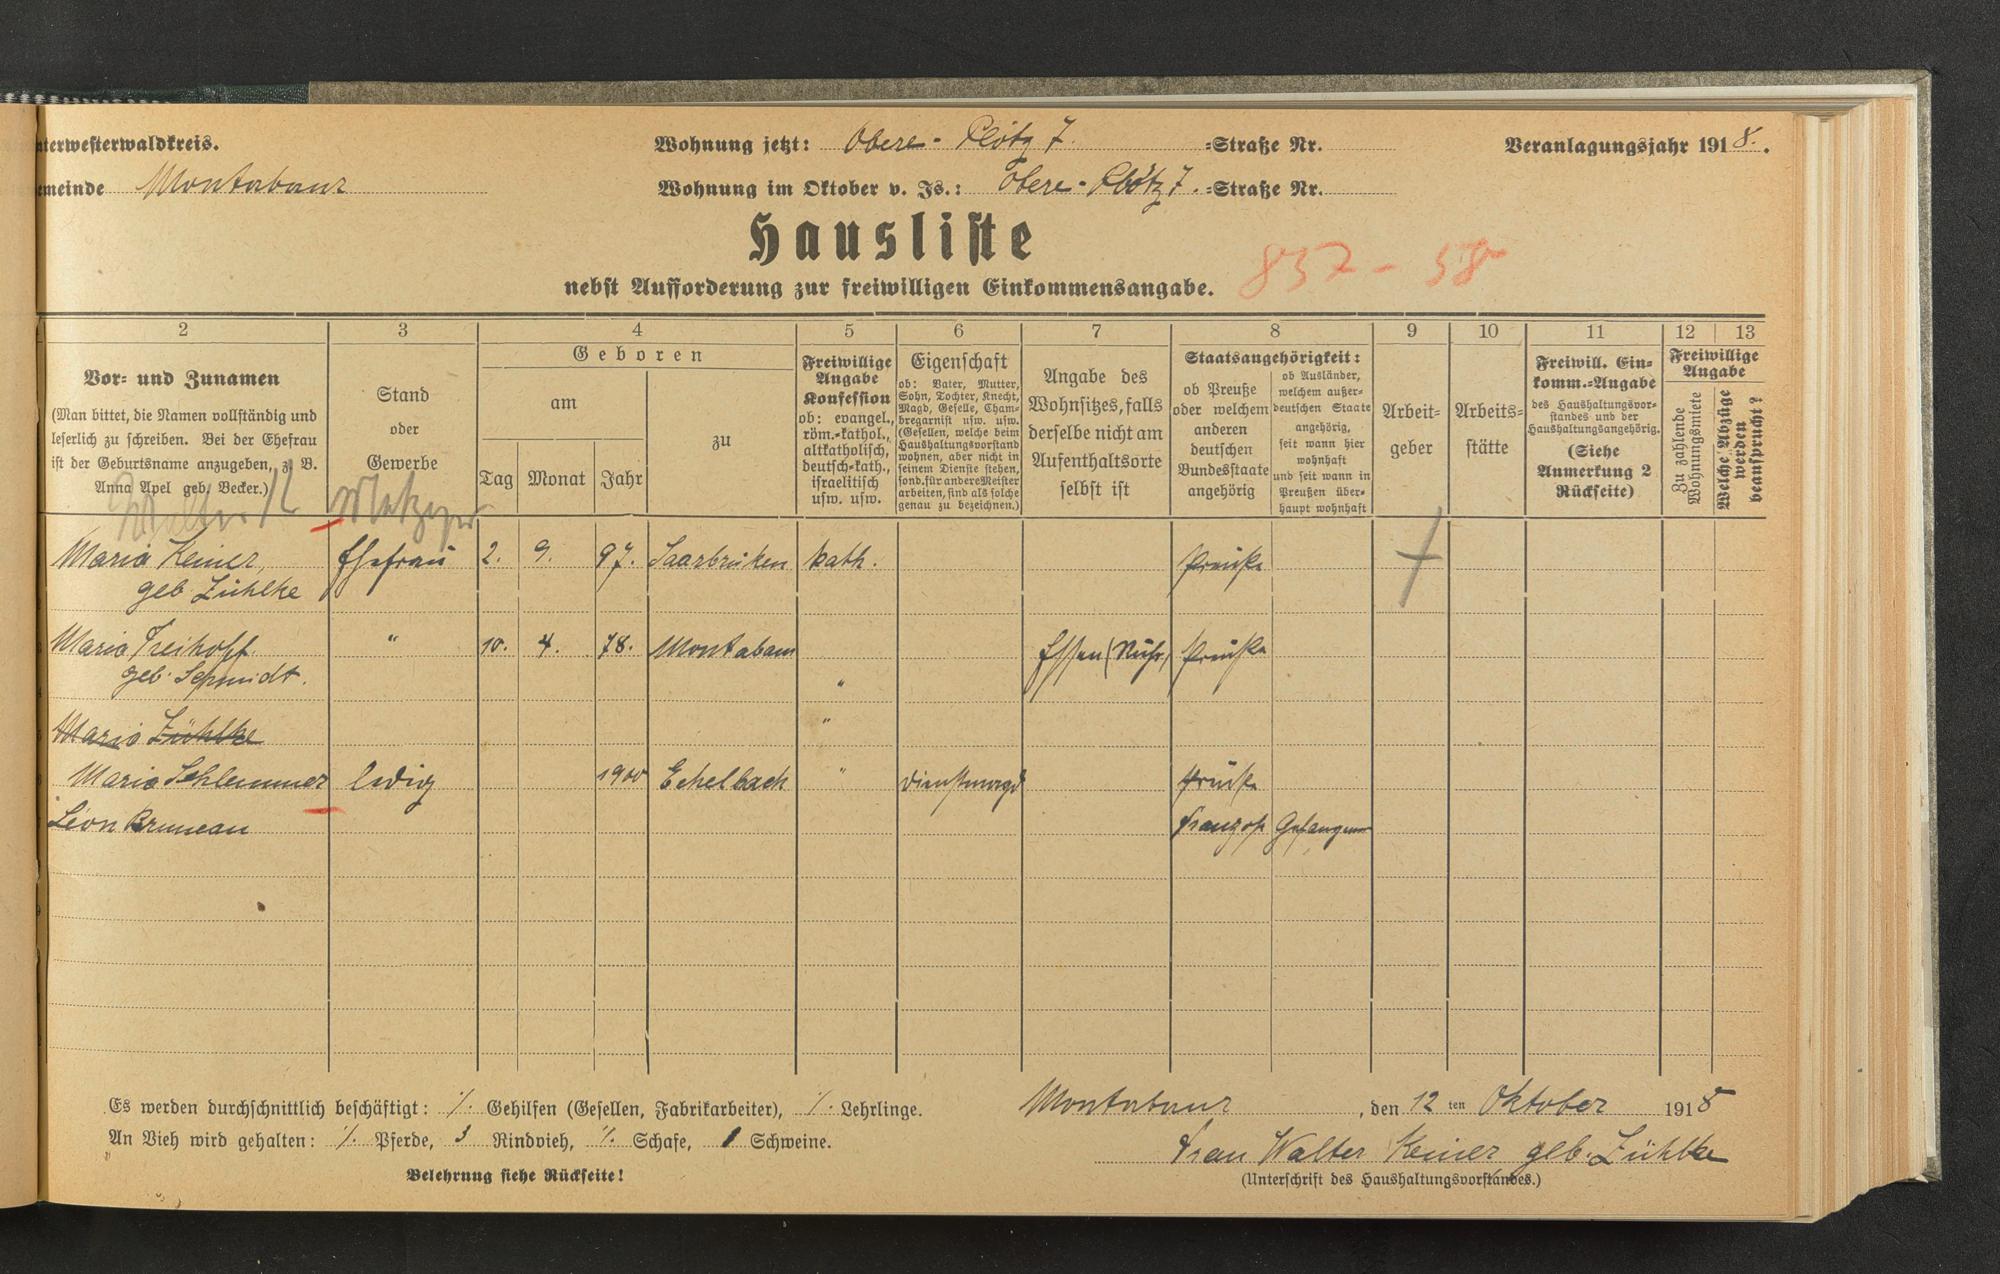 terwesterwaldkreis.
Wohnung jetzt: Obere-Plötz 7. =Straße Nr.
Veranlagungsjahr 1918.
emeinde Montabaur
Wohnung im Oktober v. Js.: Obere-Plötz 7. =Straße Nr.
Hausliste
nebst Aufforderung zur freiwilligen Einkommensangabe.
837 - 58
2 3 4 5 6 7 8 9 10 11 12 13
Vor- und Zunamen
(Man bittet, die Namen vollständig und
leserlich zu schreiben. Bei der Ehefrau
ist der Geburtsname anzugeben, z. B.
Anna Apel geb. Becker.)
Stand
oder
Gewerbe
Geboren
am
zu
Tag Monat Jahr
Freiwillige
Angabe
Konfession
ob: evangel.,
röm.-kathol.,
altkatholisch,
deutsch-kath.,
israelitisch
usw. usw.
Eigenschaft
ob: Vater, Mutter,
Sohn, Tochter, Knecht,
Magd, Geselle, Cham-
bregarnist usw. usw.
(Gesellen, welche beim
Haushaltungsvorstand
wohnen, aber nicht in
seinem Dienste stehen,
sond. für andere Meister
arbeiten, sind als solche
genau zu bezeichnen.)
Angabe des
Wohnsitzes, falls
derselbe nicht am
Aufenthaltsorte
selbst ist
Staatsangehörigkeit:
ob Preuße
oder welchem
anderen
deutschen
Bundesstaate
angehörig
ob Ausländer,
welchem außer-
deutschen Staate
angehörig,
seit wann hier
wohnhaft
und seit wann in
Preußen über-
haupt wohnhaft
Arbeit-
geber
Arbeits-
stätte
Freiwill. Ein-
komm.-Angabe
des Haushaltungsvor-
standes und der
Haushaltungsangehörig.
(Siehe
Anmerkung 2
Rückseite)
Freiwillige
Angabe
Zu zahlende
Wohnungsmiete
Welche Abzüge
werden
beansprucht?
Walter Metzger
Maria Keiner, Ehefrau 2. 9. 97. Saarbrüken kath. Preuße
geb Zühlke
Maria Freihoff. " 10. 4. 78. Montabaur Essen (Ruhr) Preuße
geb. Schmidt. "
Maria Zühlke "
Maria Schlemmer ledig 1900 Eschelbach " Dienstmagd Preuße
Léon Bruneau Franzos Gefangener
Es werden durchschnittlich beschäftigt: ·/. Gehilfen (Gesellen, Fabrikarbeiter), ·/. Lehrlinge.
An Vieh wird gehalten: ·/. Pferde, 3 Rindvieh, ·/. Schafe, 1 Schweine.
Belehrung siehe Rückseite!
Montabaur, den 12 ten Oktober 1918
Frau Walter Keiner geb. Zühlke
(Unterschrift des Haushaltungsvorstandes.)